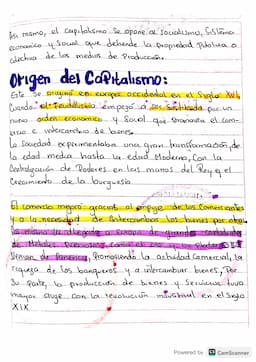 Asi mismo, el capitalismo se opone al Socialismo, Sistema
economico y Social que defiende la Propiedad Publica o
colectiva de los medios de Producción.
Origen del Capitalismo:
Este se origino en europa occidental en el Siglo XVI,
Cuando el Feudalismo empezó a ser Sustituido por un
nuevo orden economico y Social que Promovia el com-
ercio e intercambio de bienes.
La Sociedad experimentaba una gran transformación, de
la edad media hasta la edad Moderna, Con la
Centralización de Poderes en las manos del Rey y el
Crecimiento de la burguesia
El comercio mejoró gracias al empuje de los Comerciantes
y a la necesidad de intercambios los bienes por otro
lo mismo la llegada a Europa de grandes cantidades
de Metales Preciosos como
America, Promoviendo la actividad Comercial, la
riqueza de los banqueros y a intercambiar bienes, Por
Su parte, la producción de bienes y Servicios tuvo
mayor auge con la revolución industrial en el Siglo
XIX
Powered by CS CamScanner